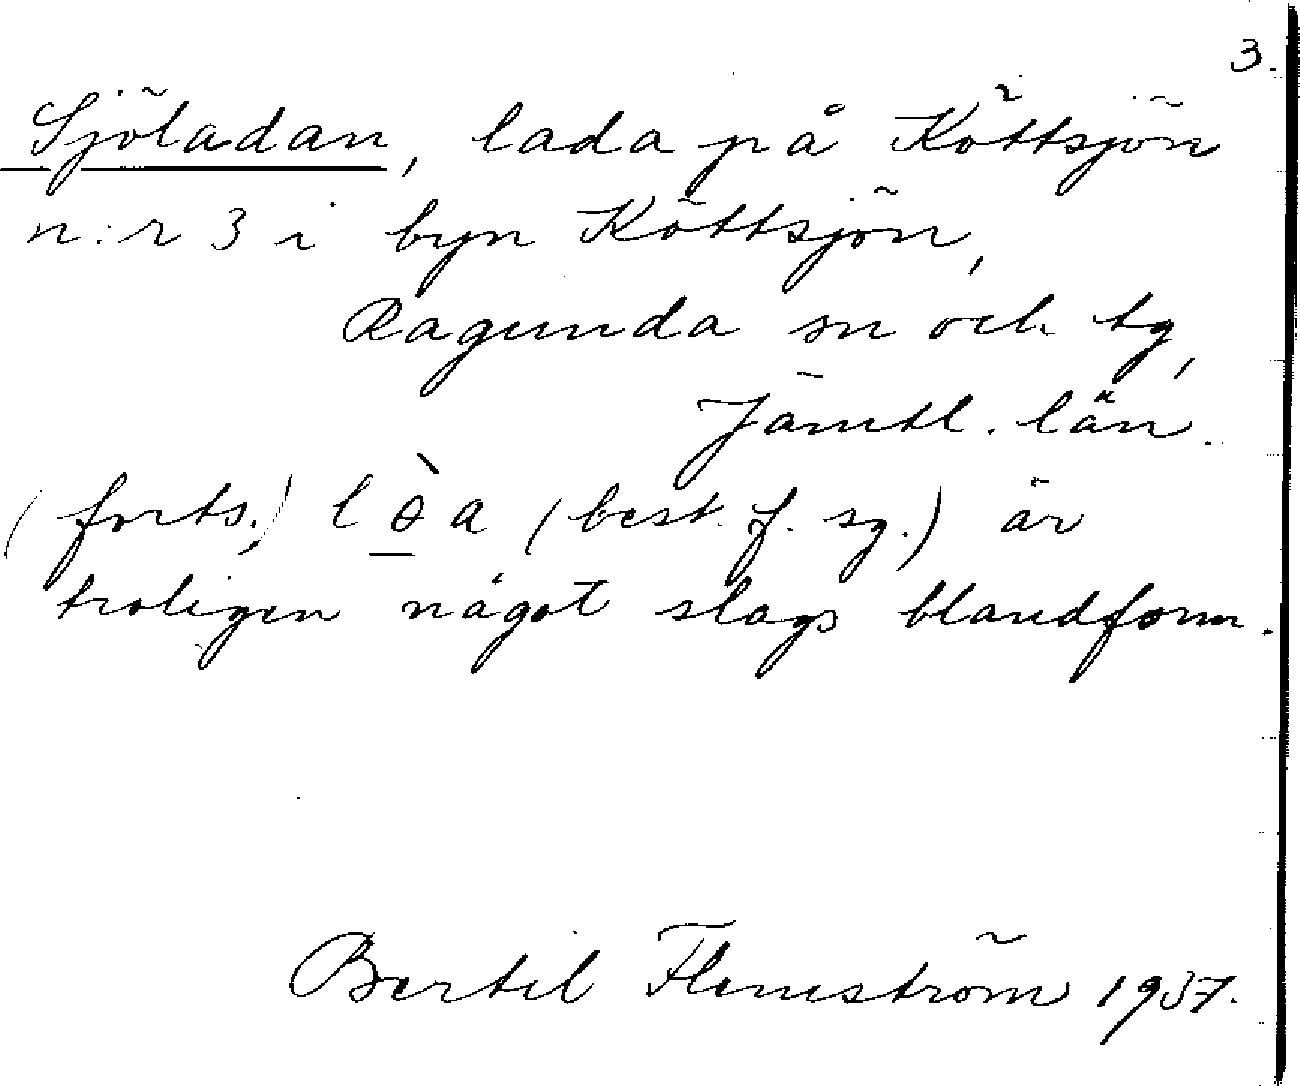 3.
Sjöladan, lada på Köttsjön
n:r 3 i byn Köttsjön,
Ragunda sn och tg,
Jämtl. län.
(forts.) lɵ̀a (best. f. sg.) är
troligen något slags blandform.
Bertil Flemström 1937.